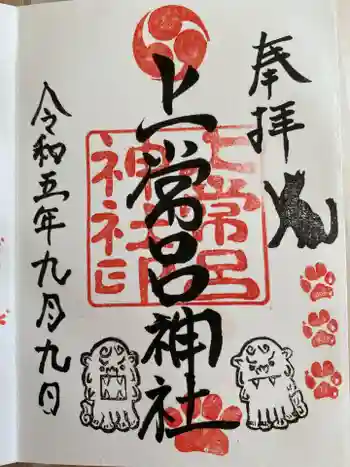 奉拝
上常呂神社
上常呂
神社印
令和五年九月九日